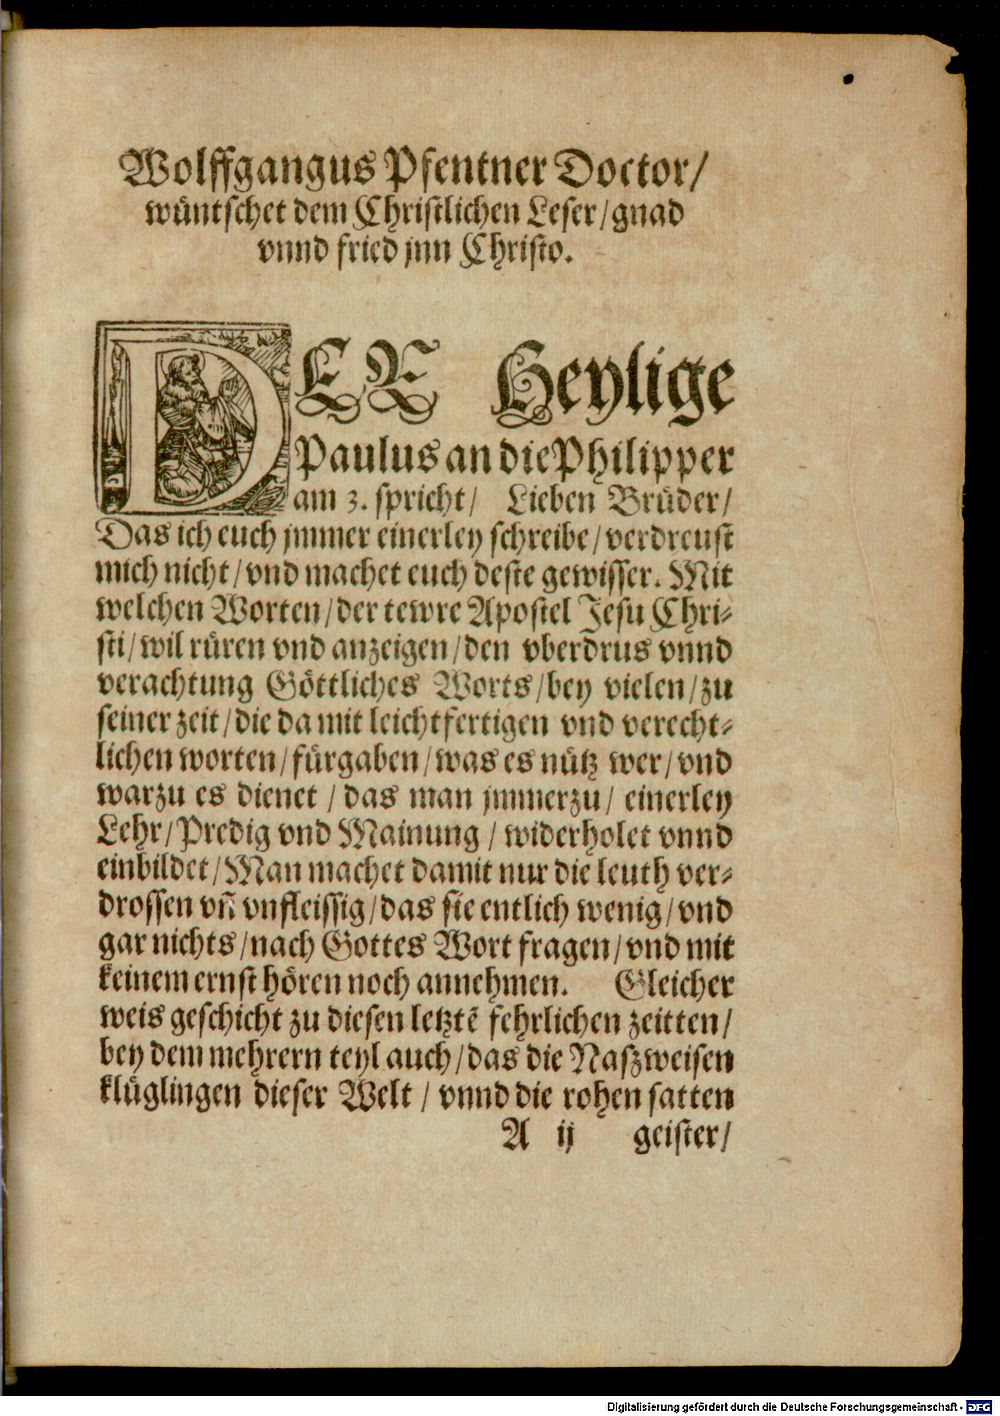 Wolffgangus Psentner Doctor/
wüntschet dem Christlichen Leser/gnad
vnnd fried jnn Christo.
DER Heylige
Paulus an die Philipper
am 3. spricht/ Lieben Brüder/
Das ich euch jmmer einerley schreibe/verdreust
mich nicht/vnd machet euch deste gewisser. Mit
welchen Worten/der tewre Apostel Jesu Chri⸗
sti/wil rüren vnd anzeigen/den vberdrus vnnd
verachtung Göttliches Worts/bey vielen/zu
seiner zeit/die da mit leichtfertigen vnd verecht⸗
lichen worten/fürgaben/was es nütz wer/vnd
warzu es dienet/das man jmmerzu/einerley
Lehr/Predig vnd Mainung/widerholet vnnd
einbildet/Man machet damit nur die leuth ver⸗
drossen vñ vnfleissig/das sie entlich wenig/vnd
gar nichts/nach Gottes Wort fragen/vnd mit
keinem ernst hören noch annehmen. Gleicher
weis geschicht zu diesen letztẽ fehrlichen zeitten/
bey dem mehrern teyl auch/das die Naszweisen
klüglingen dieser Welt/vnnd die rohen satten
A ij geister/
Digitalisierung gefördert durch die Deutsche Forschungsgemeinschaft - DFG